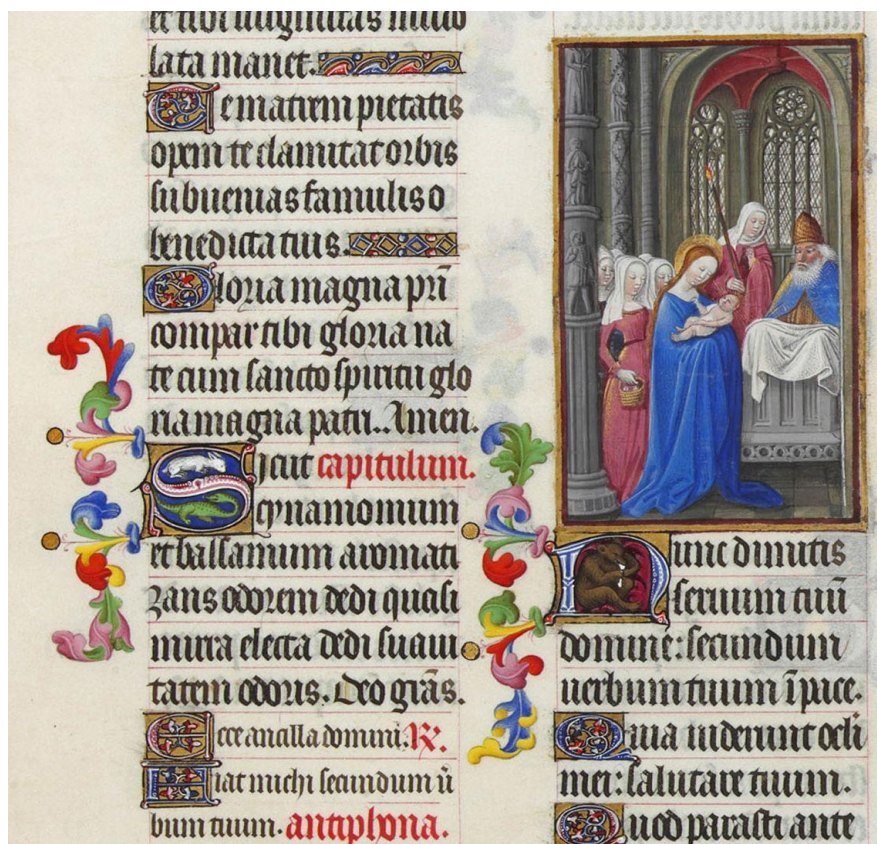 et tibi virginitas invio
lata manet.
Te matrem pietatis
opem te clamitat orbis
subuenias famulis o
benedicta tuis.
Gloria magna pr̄i
compar tibi gloria na
te cum sancto spiritu glo
ria magna patri. Amen.
Sicut capitulum.
cynamomum
et balsamum aromati
zans odorem dedi quasi
mirra electa dedi suaui
tatem odoris. Deo gr̄as.
Ecce ancilla domini. R.
Fiat michi secundum ū
bum tuum. antiphona.
Nunc dimitis
seruum tuū
domine: secundum
uerbum tuum ī pace.
Quia uiderunt ocli
mei: salutare tuum.
Quod parasti ante